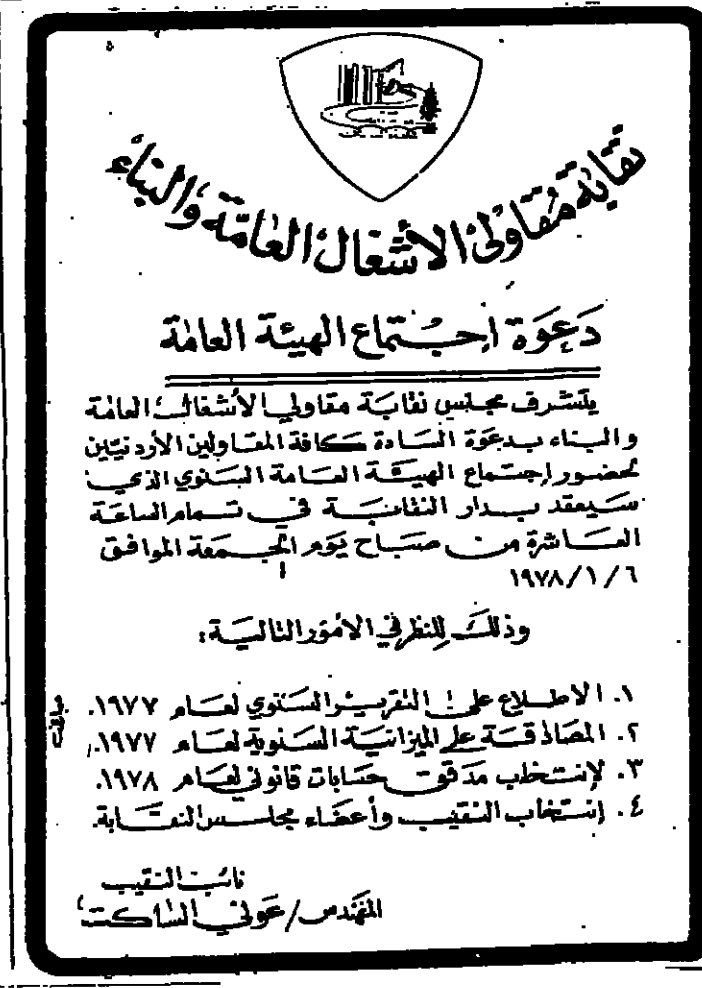 نقابة مقاولي الأشغال العامة والبناء
دعوة اجتماع الهيئة العامة
يتشرف مجلس نقابة مقاولي الأشغال العامة
والبناء بدعوة السادة كافة المقاولين الأردنيين
لحضور إجتماع الهيئة العامة السنوي الذي
سيعقد بدار النقابة في تمام الساعة
العاشرة من صباح يوم الجمعة الموافق
١٩٧٨/١/٦
وذلك للنظر في الامور التالية:
١. الاطلاع على التقرير السنوي لعام ١٩٧٧.
٢. المصادقة على الميزانية السنوية لعام ١٩٧٧.
٣. إنتخاب مدقق حسابات قانوني لعام ١٩٧٨.
٤. إنتخاب النقيب وأعضاء مجلس النقابة.
نائب النقيب
المهندس/عوني الساكت